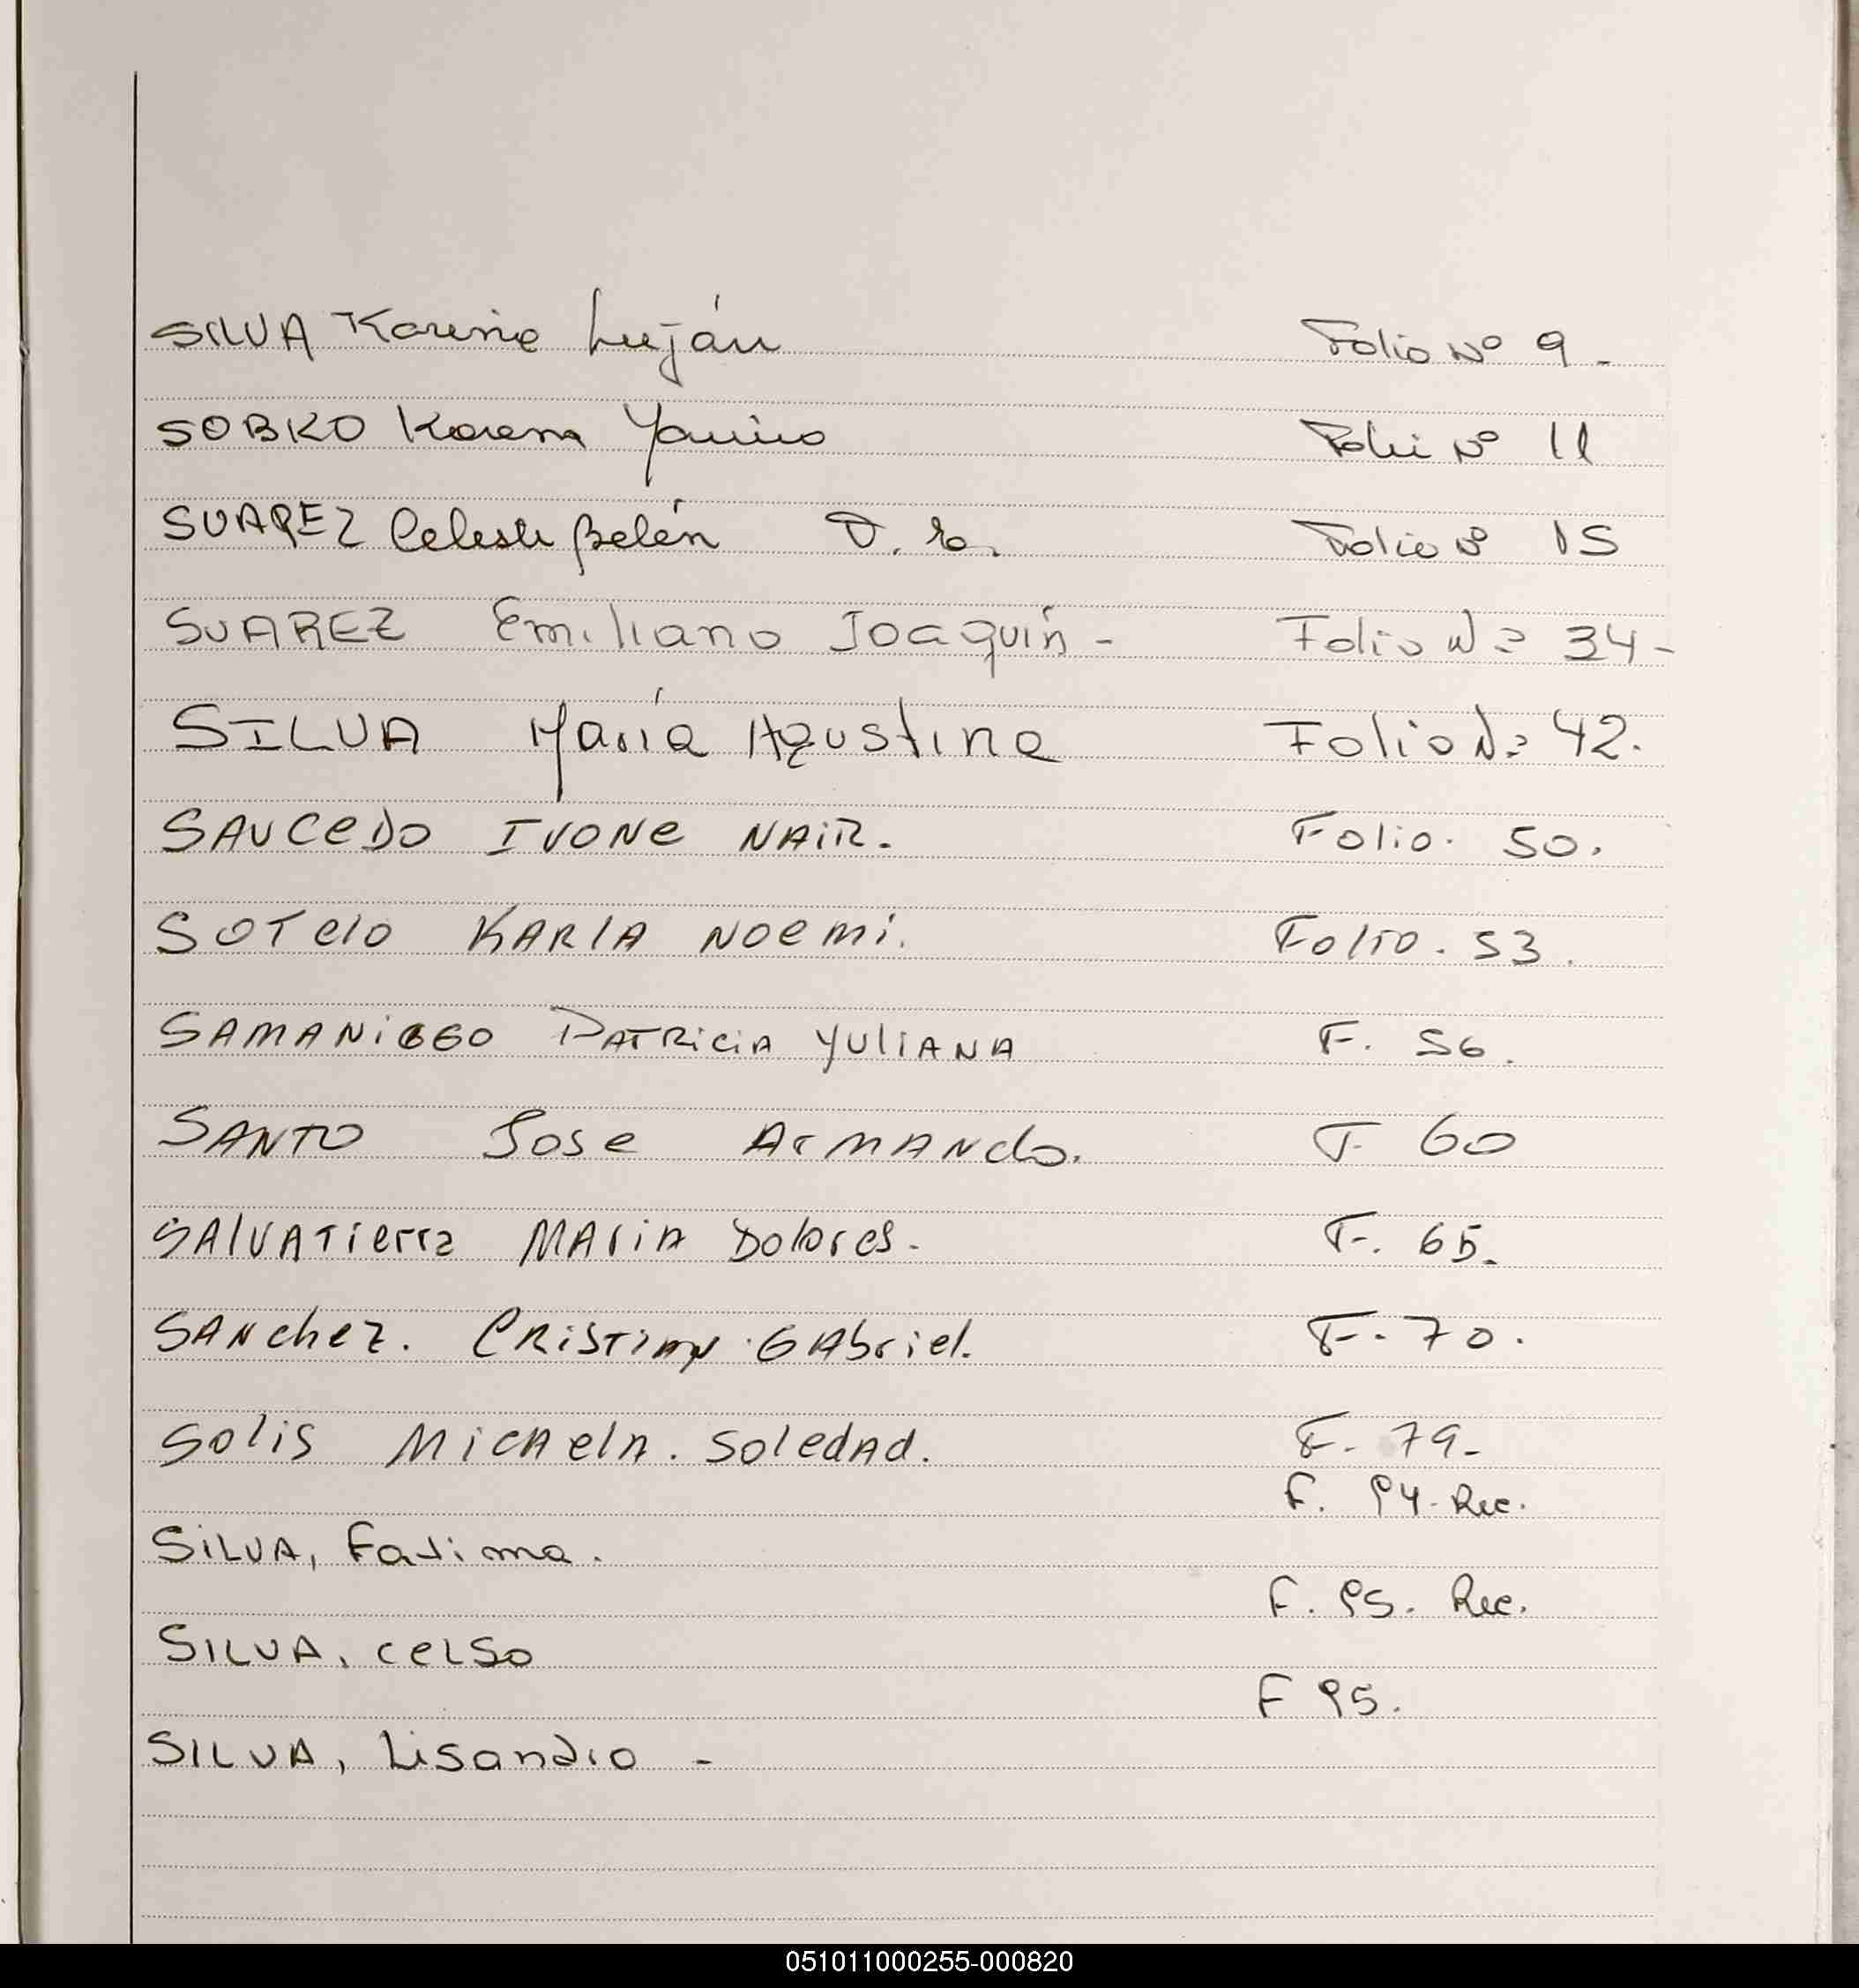 SILVA Karina Luján Folio Nº 9.
SOBKO Karena Yanina Folio Nº 11
SUAREZ Celeste Belén D. Folio Nº 15
SUAREZ Emiliano Joaquín - Folio Nº 34-
SILVA María Agustina Folio Nº 42.
SAUCeDO IVONe NAiR. Folio. 50.
SOTelo KARlA NOemi. Folio. 53.
SAMANiEGO PATRiciA YUliANA F. 56.
SANTO Jose ArMANdo. F. 60
SAlVATierra MAriA Dolores. F. 65.
SANchez. CRiSTiAN GAbriel. F. 70.
SOliS MicAelA. SoledAd. F. 79-
F. 94. Rec.
SiLVA, Fatima.
F. 95. Rec.
SILVA, ceLSo
F 95.
SILVA, Lisandro -
051011000255-000820